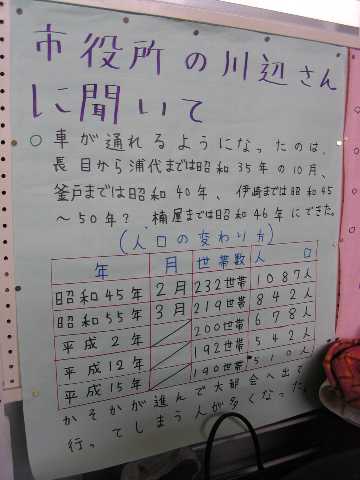 市役所の川辺さん
に聞いて
○車が通れるようになったのは、
長目から浦代までは昭和35年の10月、
釜戸までは昭和40年、伊崎までは昭和45
～50年？ 楠屋までは昭和46年にできた。
(人口の変わり方)
年 月 世帯数 人口
昭和45年 2月 232世帯 1087人
昭和55年 3月 219世帯 842人
平成2年 200世帯 678人
平成12年 192世帯 542人
平成15年 190世帯 510人
かそかが進んで大都会へ出て
行ってしまう人が多くなった。